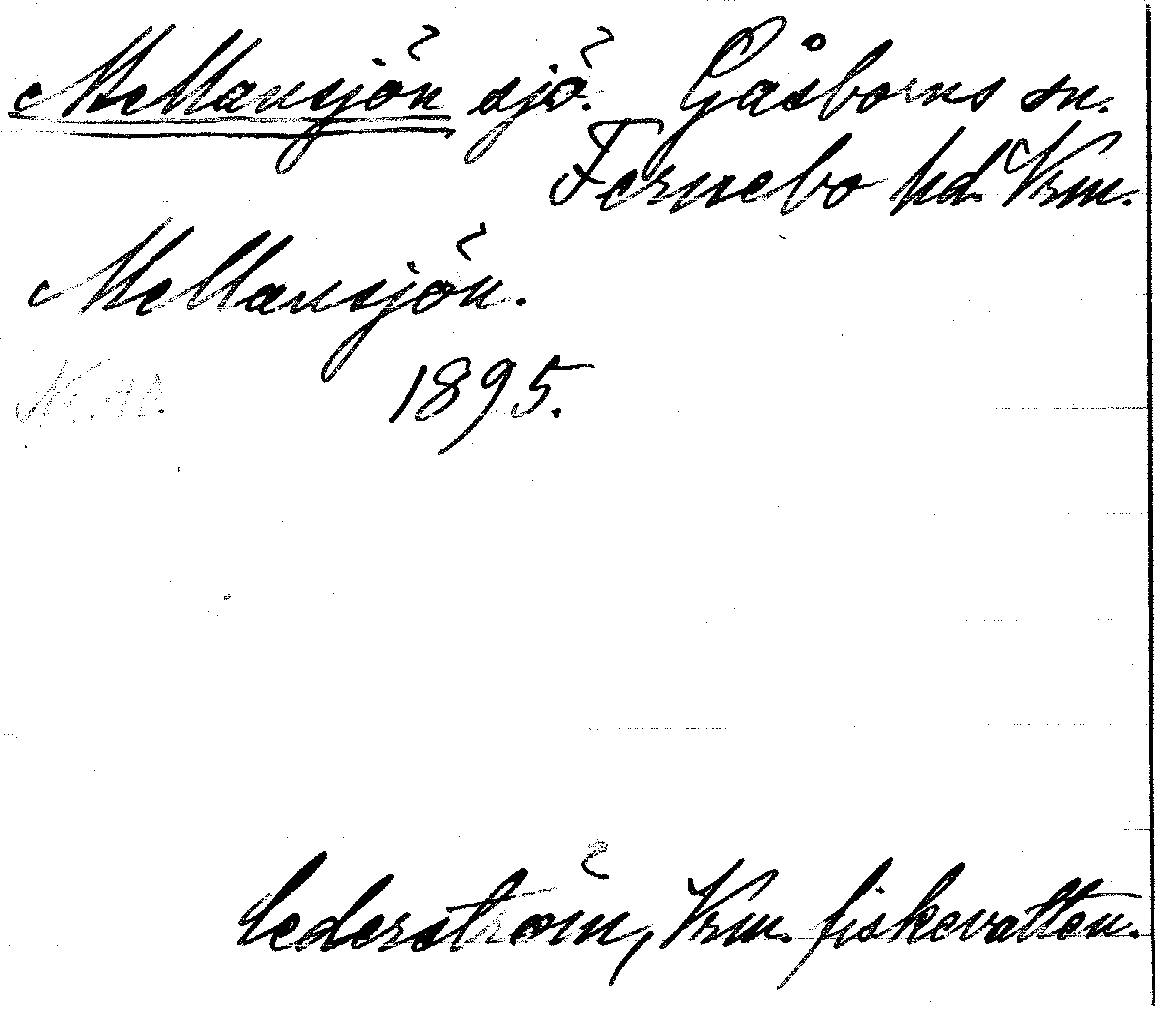 Mellansjön sjö. Gåsborns sn.
Fernebo hd. Vrm.
Mellansjön.
1895.
Cederström, Vrm. fiskevatten.